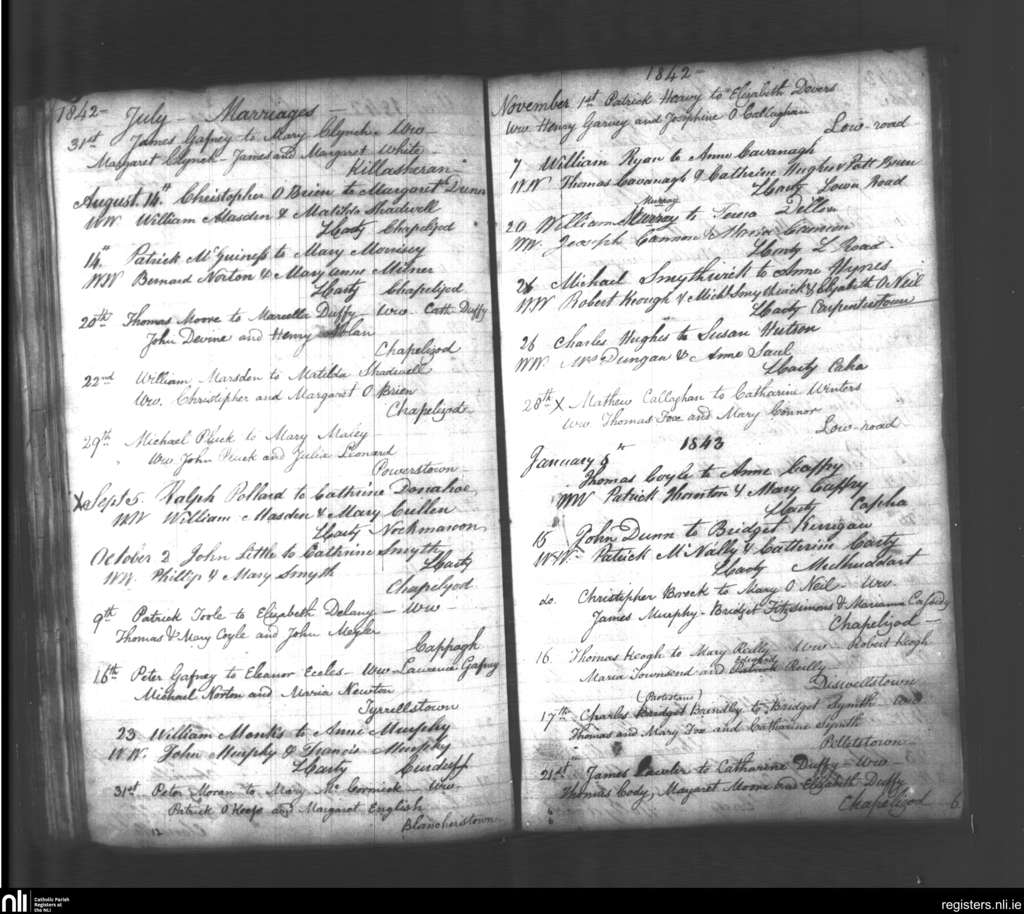 1842- July Marriages
31st James Gafney to Mary Clynch - Ww
Margaret Clynch - James and Margaret White
Killasheran
August 14th Christopher O Brien to Margaret Dunn
WW William Masden & Matilda Shadwell
Chapelizod
14th Patrick McGuiness to Mary Morrisey
WW Bernard Norton & Mary anne Milner
Chapelizod
20th Thomas Moore to Marcella Duffy - Ww. Cath Duffy
John Devine and Henry Nolan
Chapelizod
22nd William Marsden to Matilda Shadwell
Ww. Christopher and Margaret O Brien
Chapelizod
29th Michael Pluck to Mary Maley
Ww John Pluck and Julia Leonard
Powerstown
X Sept 5. Ralph Pollard to Cathrine Donahoe
WW William Masden & Mary Cullen
Nockmaroon
October 2 John Little to Cathrine Smyth
WW. Phillip & Mary Smyth
Chapelizod
9th Patrick Toole to Elizabeth Delany - Ww -
Thomas & Mary Coyle and John Meyler
Cappagh
16th Peter Gafney to Eleanor Eccles - Ww Laurence Gafney
Michael Norton and Maria Newton
Tyrrellstown
23 William Monks to Anne Murphy
WW. John Murphy & Francis Murphy
31st Peter Moran to Mary McCormick - Ww.
Patrick O Keefe and Margaret English
Blanchardstown
12
1842-
November 1st Patrick Hearvy to Elizabeth Devers
Ww Henry Garvey and Josephine O Callaghan
Low-road
7 William Ryan to Anne Cavanagh
WW Thomas Cavanagh & Cathrine Hughes Patt Brien
Lower Road
Murray
20 William Murray to Teresa Dillon
WW. Joseph Cannon & Maria Cannon
L Road
26 Michael Smythwick to Anne Hynes
WW Robert Keough & Michl Smythwick & Elizabeth O Neil
Carpenterstown
26 Charles Hughes to Susan Hutson
WW. Mrs Dungan & Anne Saul
28th X Mathew Callaghan to Catharine Winters
Ww Thomas Foxe and Mary Connor
Low-road
1843
January 8
Thomas Coyle to Anne Caffry
WW Patrick Thornton & Mary Caffry
15 John Dunn to Bridget Kerrigan
WW. Patrick McNally & Catherine Carty
Mulhuddart
do. Christopher Brock to Mary O Neil - Ww
James Murphy - Bridget Fitzsimons & Marianne Cassidy
Chapelizod -
16. Thomas Keogh to Mary Reilly Ww - Robert Keogh
Maria Townsend and Patrick Reilly
Diswellstown
(Protestant)
17th Charles Bridget Brindley to Bridget Synith
Thomas and Mary Foxe and Catharine Synith
Pelletstown
21st James Lawler to Catharine Duffy - Ww -
Thomas Cody, Margaret Moore and Elizabeth Duffy
Chapelizod 6
nli Catholic Parish
Registers at
the NLI
registers.nli.ie